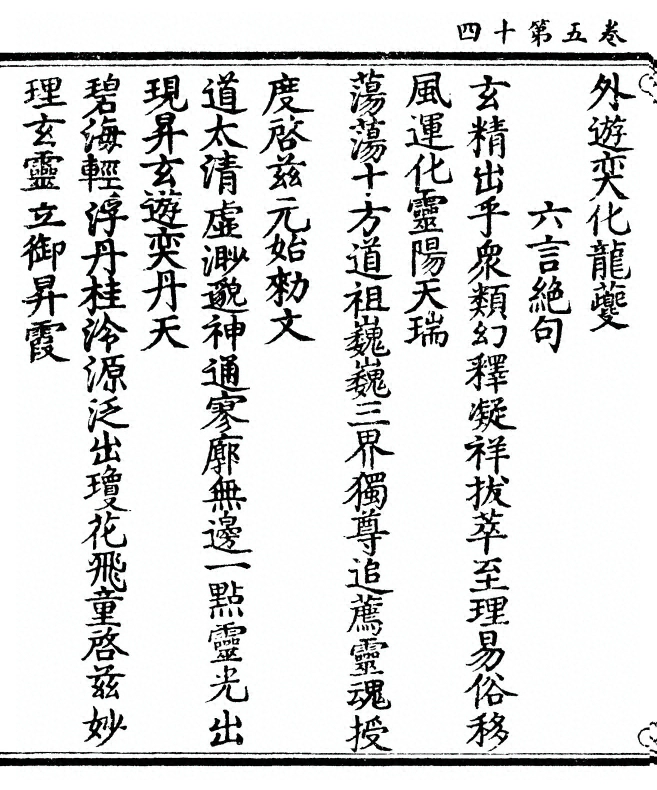 卷五第十四
外遊奕化龍蘷
六言絕句
玄精出乎衆類幻釋凝祥拔萃至理易俗移
風運化靈陽天瑞
蕩蕩十方道祖巍巍三界獨尊追薦靈魂授
度啓茲元始勑文
道太清虛渺邈神通寥廓無邊一點靈光出
現昇玄遊奕丹天
碧海輕浮丹桂泠源泛出瓊花飛童啓茲妙
理玄靈立御昇霞